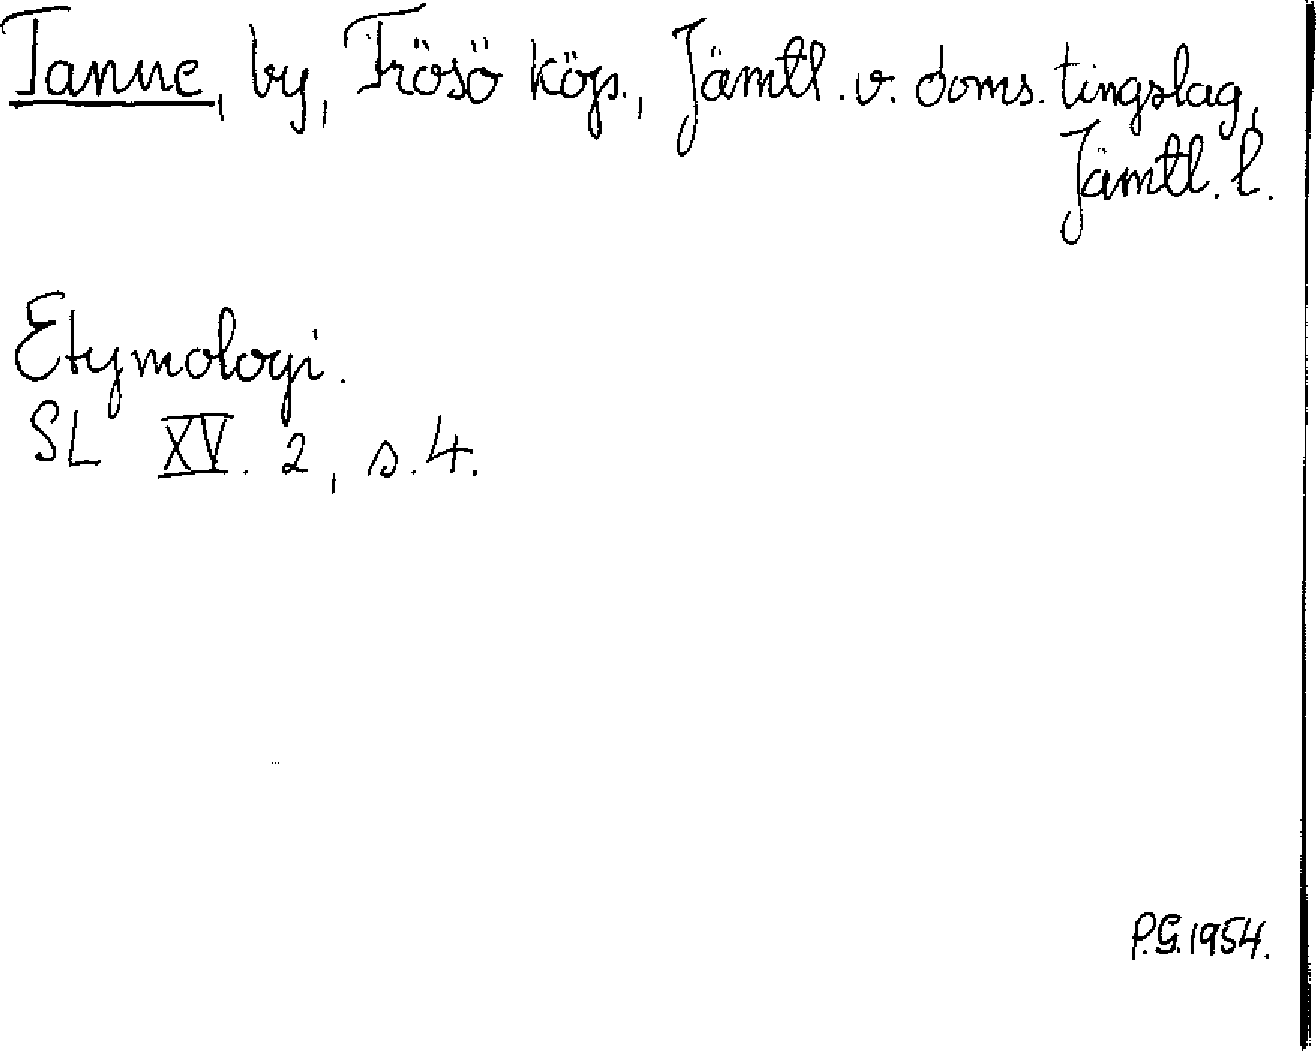 Tanne, by, Frösö köp., Jämtl. v. doms. tingslag,
Jämtl. l.
Etymologi.
SL XV. 2, s. 4.
P.G. 1954.